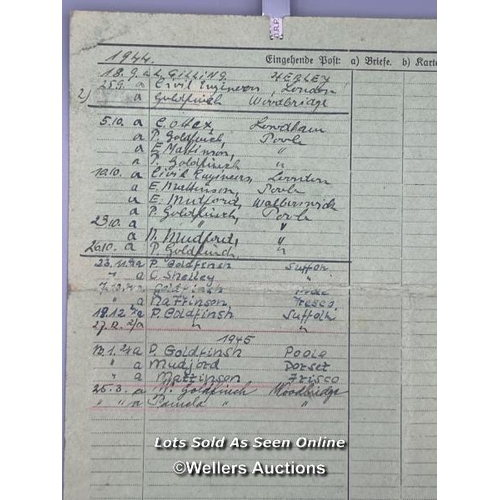 1944. Eingehende Post: a) Briefe. b) Karte
18.9. a L. GILLING, HENLEY
25.9. a Civil Engineers, London
2) " a Goldfinch Woodbridge
5.10. a C. Ottex, Lowdham
" a P. Goldfinch, Poole
" a E. Mattinson, "
" a P. Goldfinch "
10.10. a Civil Engineers, London
" a E. Mattinson, Poole
" a E. Mutford, Walberswick
" a P. Goldfinch, Poole
23.10. a " "
" a D. Mudford, "
26.10. a P. Goldfinch. "
23.11. a P. Goldfinsh Suffolk
" a C. Shelley "
a Goldfinsh Poole
" a Mattinson Fresco
19.12 a P. Goldfinsh Suffolk
27.12. a " "
1945
12.1. a P. Goldfinsh Poole
" a Mudjord Dorset
" a Mattinson Frisco
25.3. a Goldfinch Woodbridge
" " a " "
Lots Sold As Seen Online
©Wellers Auctions